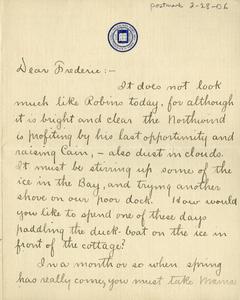 postmark 2-28-06
Dear Frederic:-
It does not look
much like Robins today, for although
it is bright and clear the Northwind
is profiting by his last opportunity and
raising Cain, - also dust in clouds.
It must be stirring up some of the
ice in the Bay, and trying another
shove on our poor dock. How would
you like to spend one of these days
paddling the duck-boat on the ice in
front of the cottage?
In a month or so when spring
has really come, you must take Mama